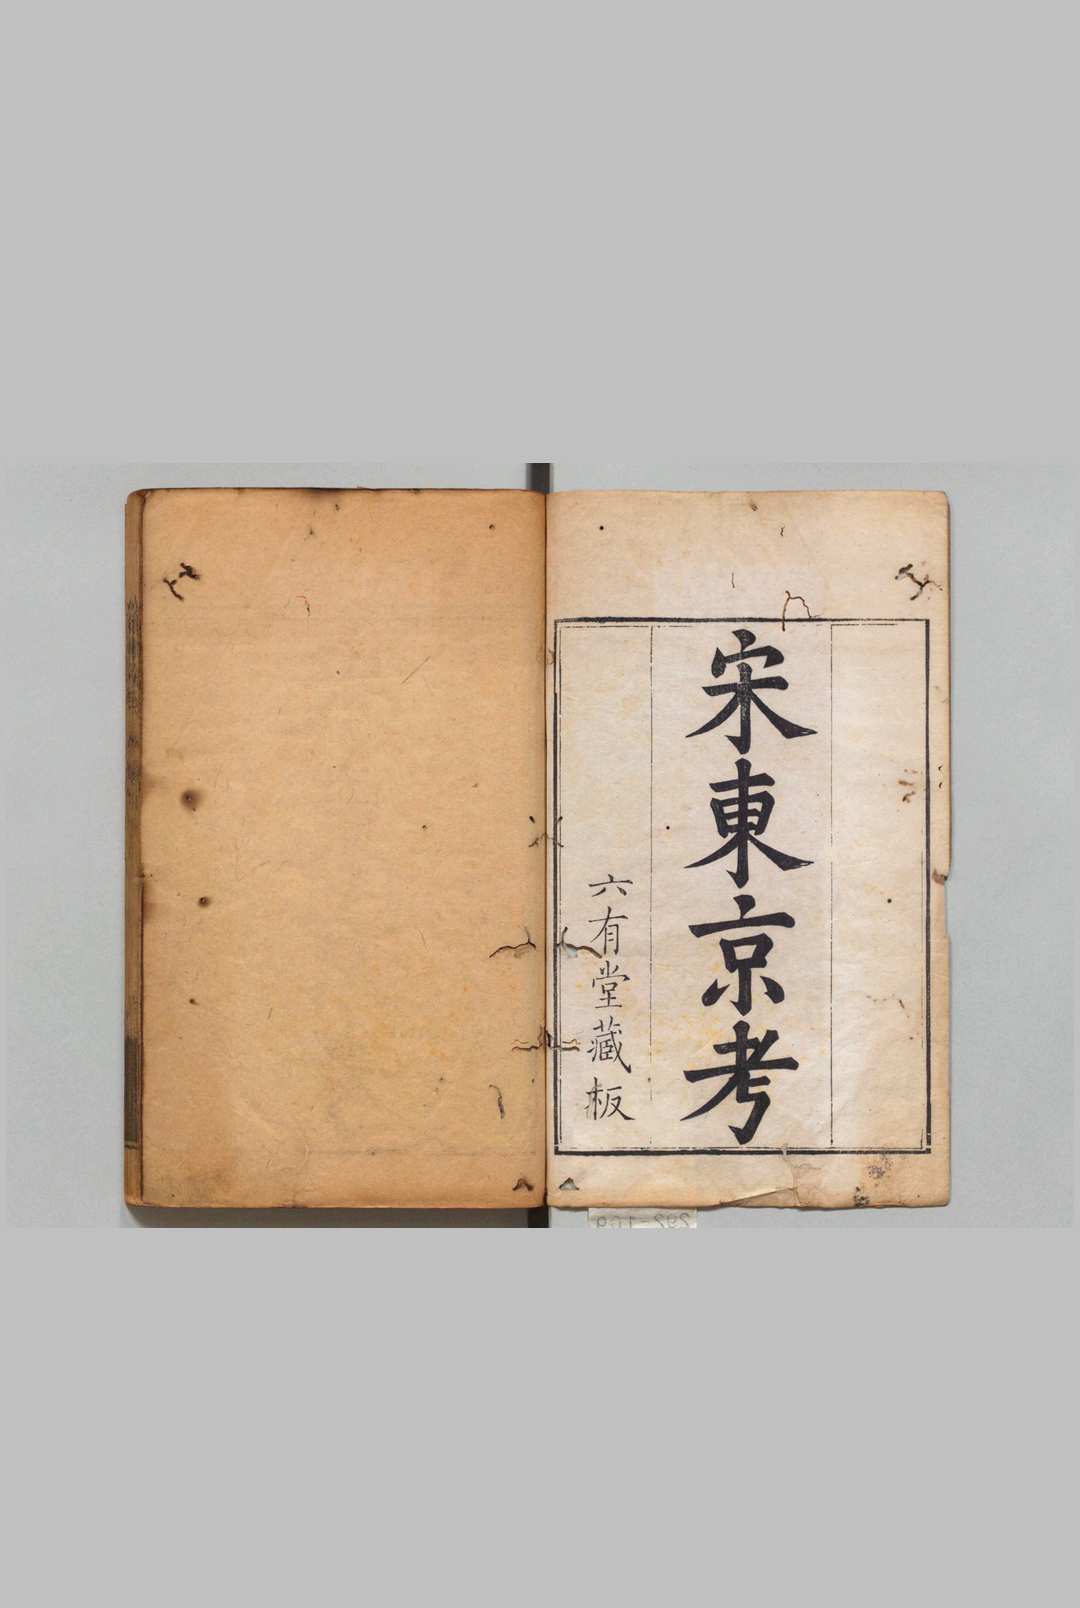 宋東京考
六有堂藏板
292-169